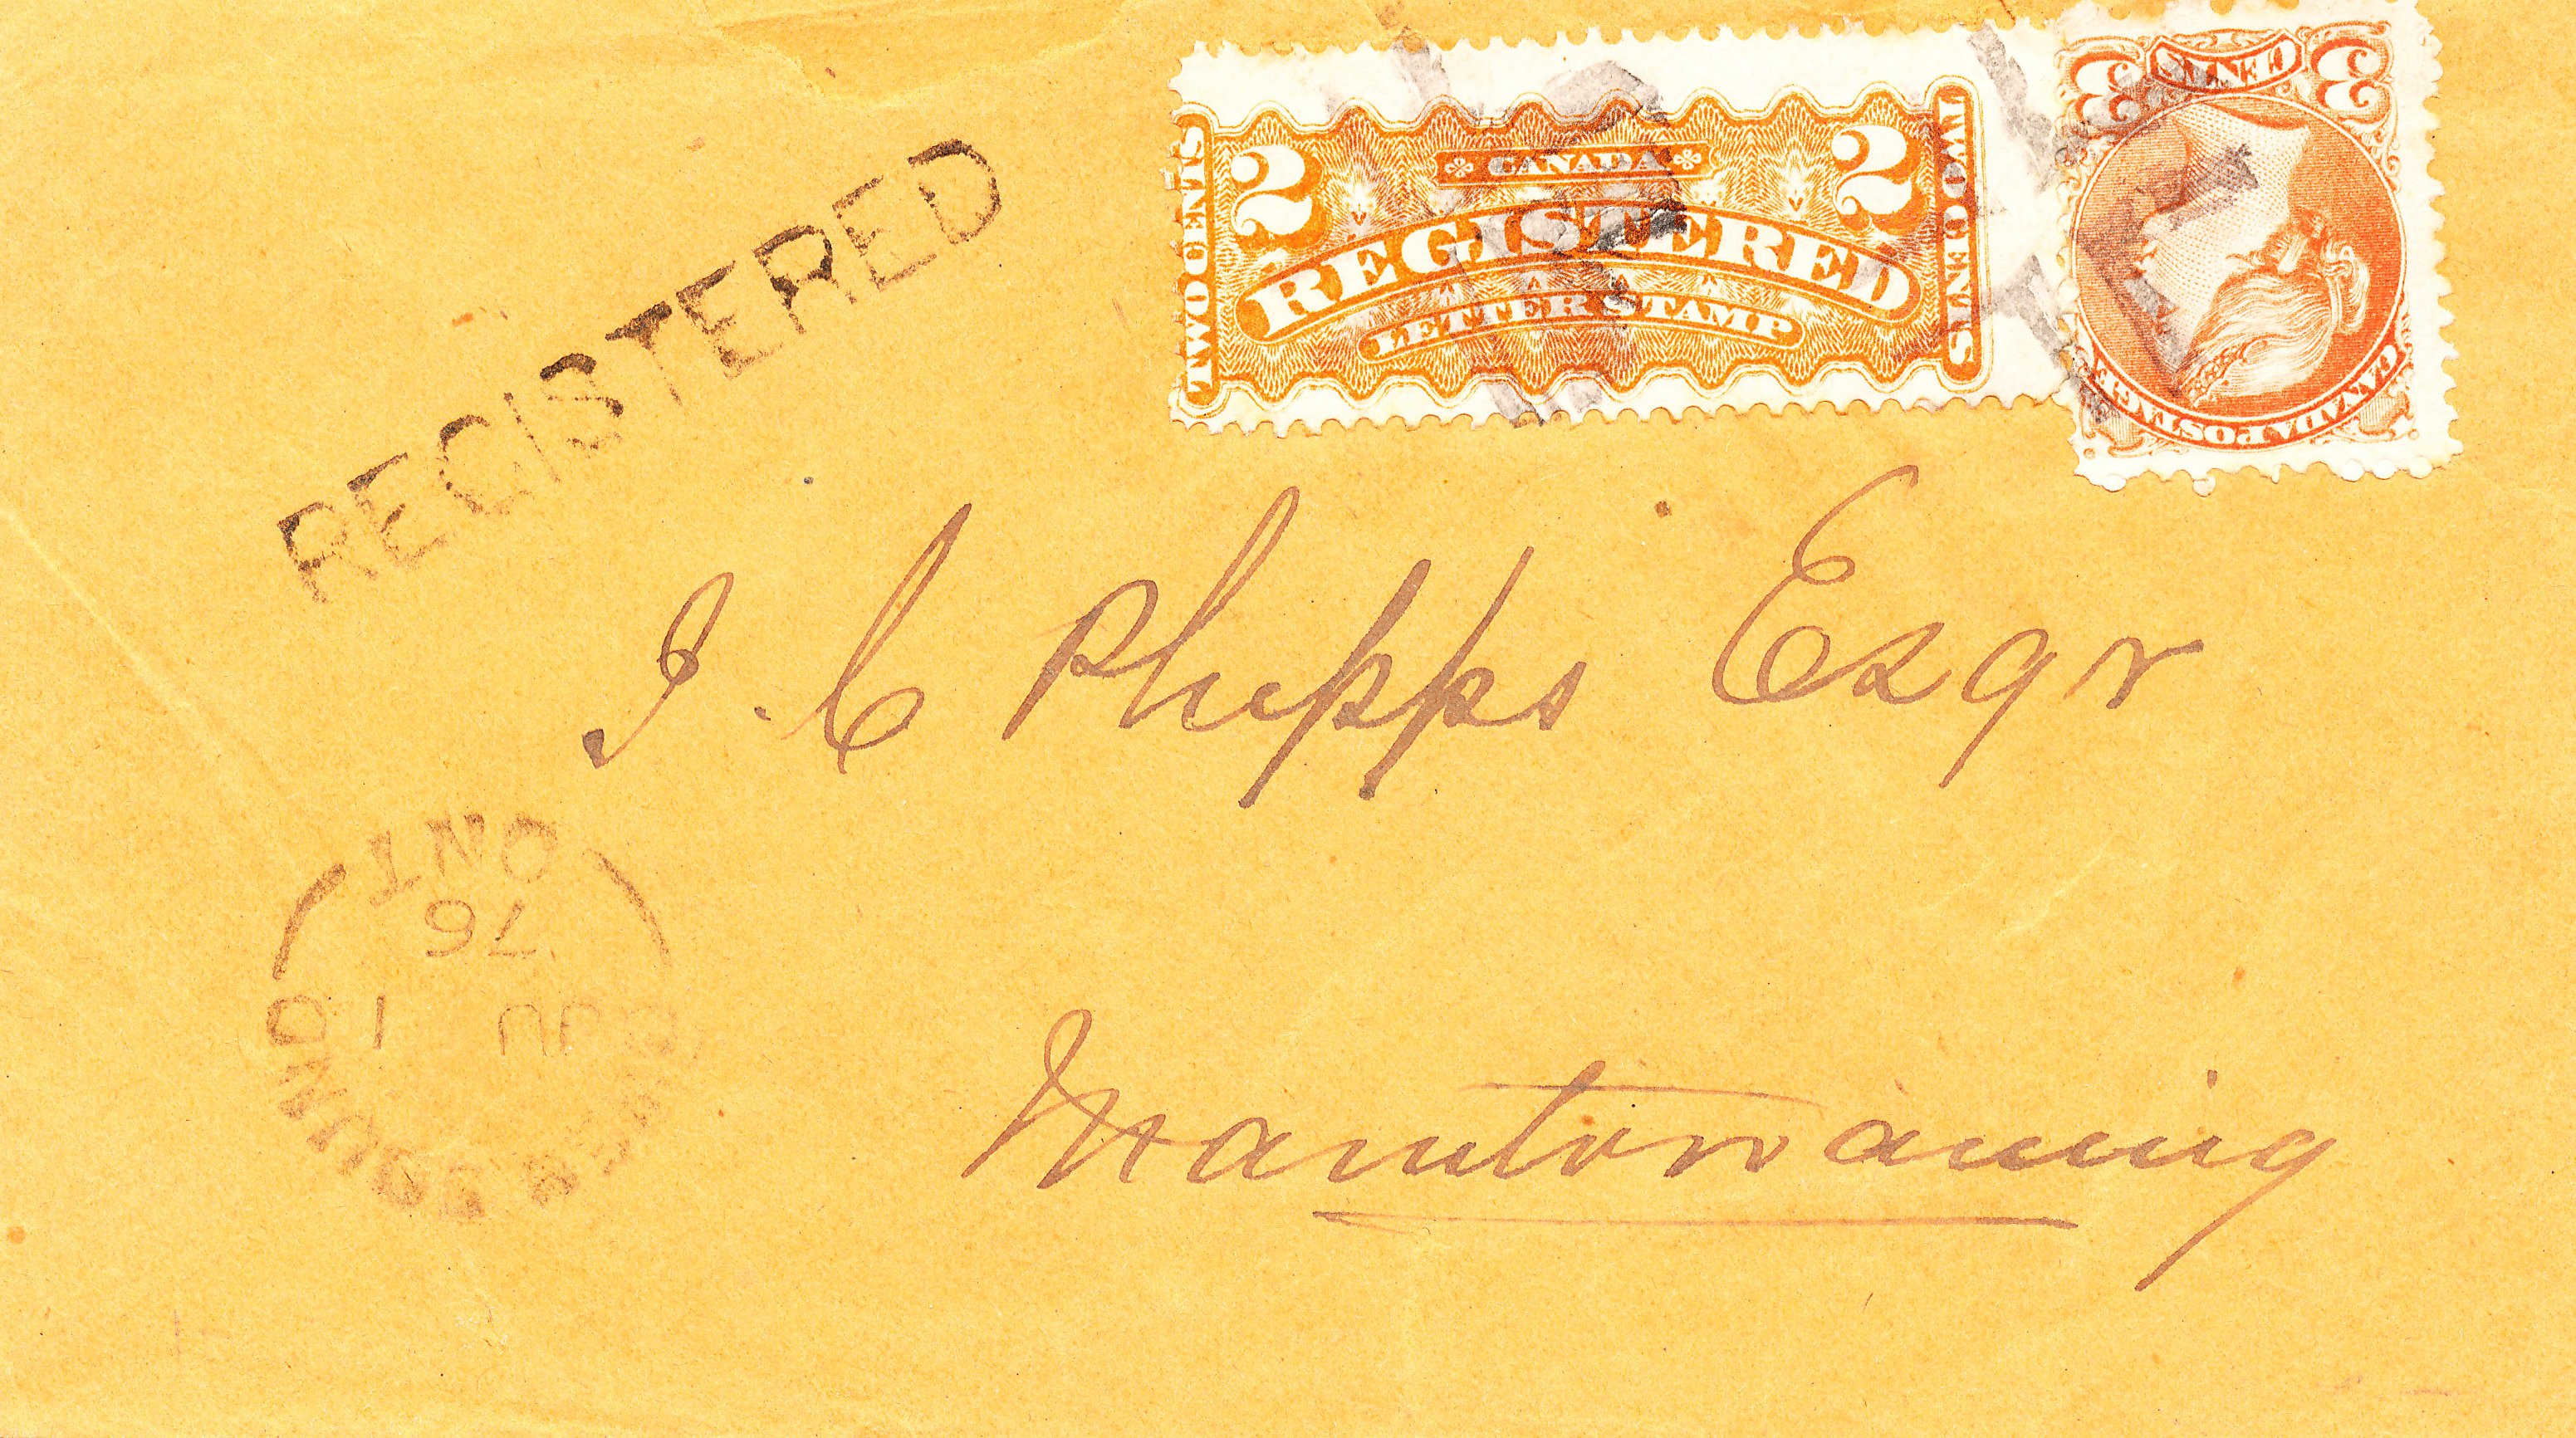 REGISTERED
CANADA
2 2
REGISTERED
LETTER STAMP
TWO CENTS
TWO CENTS
3 CENTS 3
CANADA POSTAGE
J. C Phipps Esqr
Manitowaning
OWEN SOUND
1
76
ONT